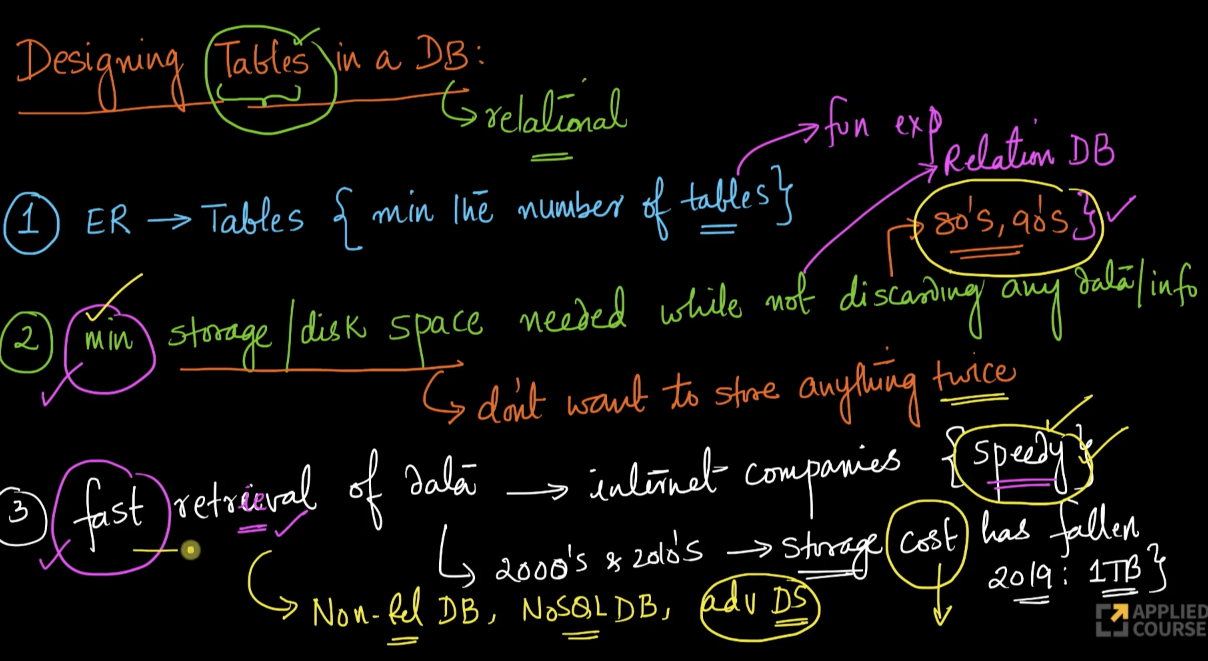 Designing Tables in a DB:
relational
fun exp
Relation DB
1 ER → Tables { min the number of tables }
80's, 90's }
2 min storage/disk space needed while not discarding any data/info
don't want to store anything twice
3 fast retrieval of data → internet companies { speedy }
2000's & 2010's → storage cost has fallen
2019: 1TB }
Non-Rel DB, NoSQL DB, adv DS
APPLIED
COURSE